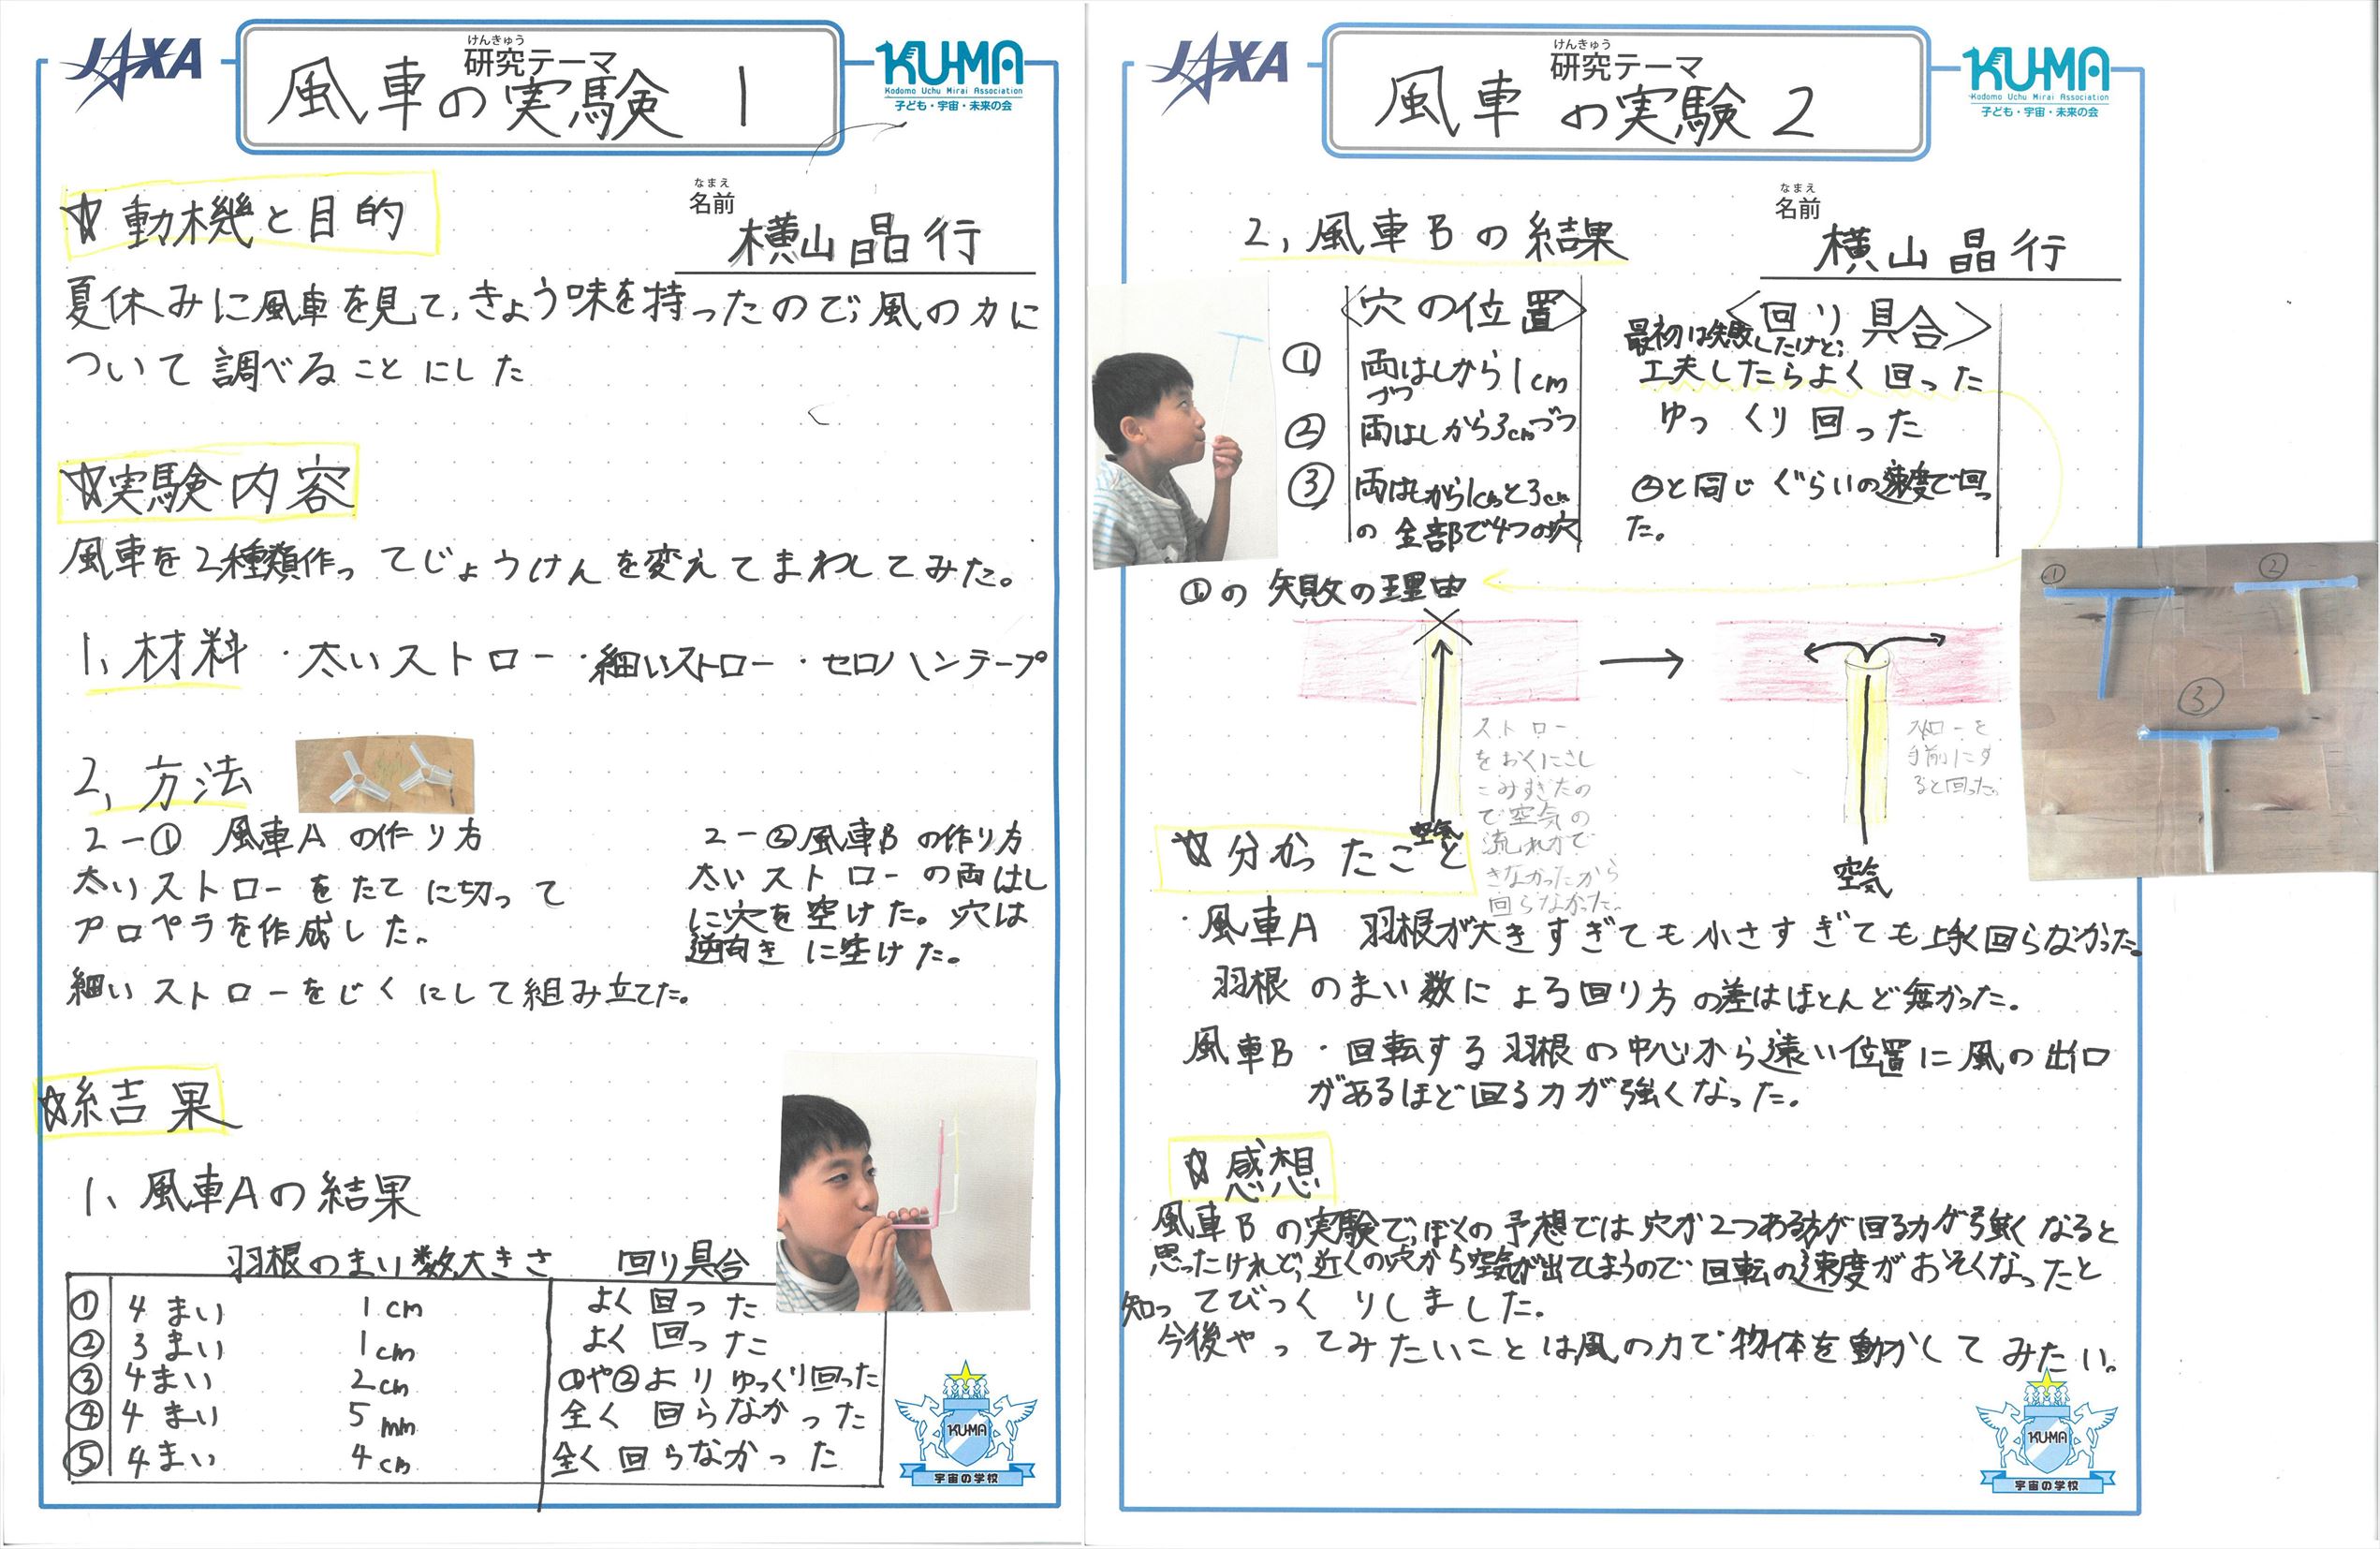 JAXA
けんきゅう
研究テーマ
風車の実験1
KU-MA
Kodomo Uchu Mirai Association
子ども・宇宙・未来の会
なまえ
名前
横山晶行
☆動機と目的
夏休みに風車を見て、きょう味を持ったので、風の力に
ついて調べることにした
☆実験内容
風車を2種類作ってじょうけんを変えてまわしてみた。
1、材料 ・太いストロー ・細いストロー ・セロハンテープ
2、方法
2-① 風車Aの作り方
太いストローをたてに切って
プロペラを作成した。
細いストローをじくにして組み立てた。
2-②風車Bの作り方
太いストローの両はし
に穴を空けた。穴は
逆向きに空けた。
☆結果
1、風車Aの結果
羽根のまい数 大きさ 回り具合
① 4まい 1cm よく回った
② 3まい 1cm よく回った
③ 4まい 2cm ①や②よりゆっくり回った
④ 4まい 5mm 全く回らなかった
⑤ 4まい 4cm 全く回らなかった
KUMA
宇宙の学校
JAXA
けんきゅう
研究テーマ
風車の実験2
KU-MA
Kodomo Uchu Mirai Association
子ども・宇宙・未来の会
なまえ
名前
横山晶行
2、風車Bの結果
〈穴の位置〉 〈回り具合〉
① 両はしから1cmづつ 最初は失敗したけど、工夫したらよく回った
② 両はしから3cmづつ ゆっくり回った
③ 両はしから1cmと3cmの全部で4つの穴 ②と同じぐらいの速度で回った。
①の失敗の理由
ストロー
をおくにさし
こみすぎたの
で空気の
流れがで
きなかったから
回らなかった。
空気
ストローを
手前にす
ると回った。
空気
①
②
③
☆分かったこと
・風車A 羽根が大きすぎても小さすぎても上手く回らなかった。
羽根のまい数による回り方の差はほとんど無かった。
風車B・回転する羽根の中心から遠い位置に風の出口
があるほど回る力が強くなった。
☆感想
風車Bの実験で、ぼくの予想では穴が2つある方が回る力が強くなると
思ったけれど、近くの穴から空気が出てしまうので回転の速度がおそくなったと
知ってびっくりしました。
今後やってみたいことは風の力で物体を動かしてみたい。
KUMA
宇宙の学校